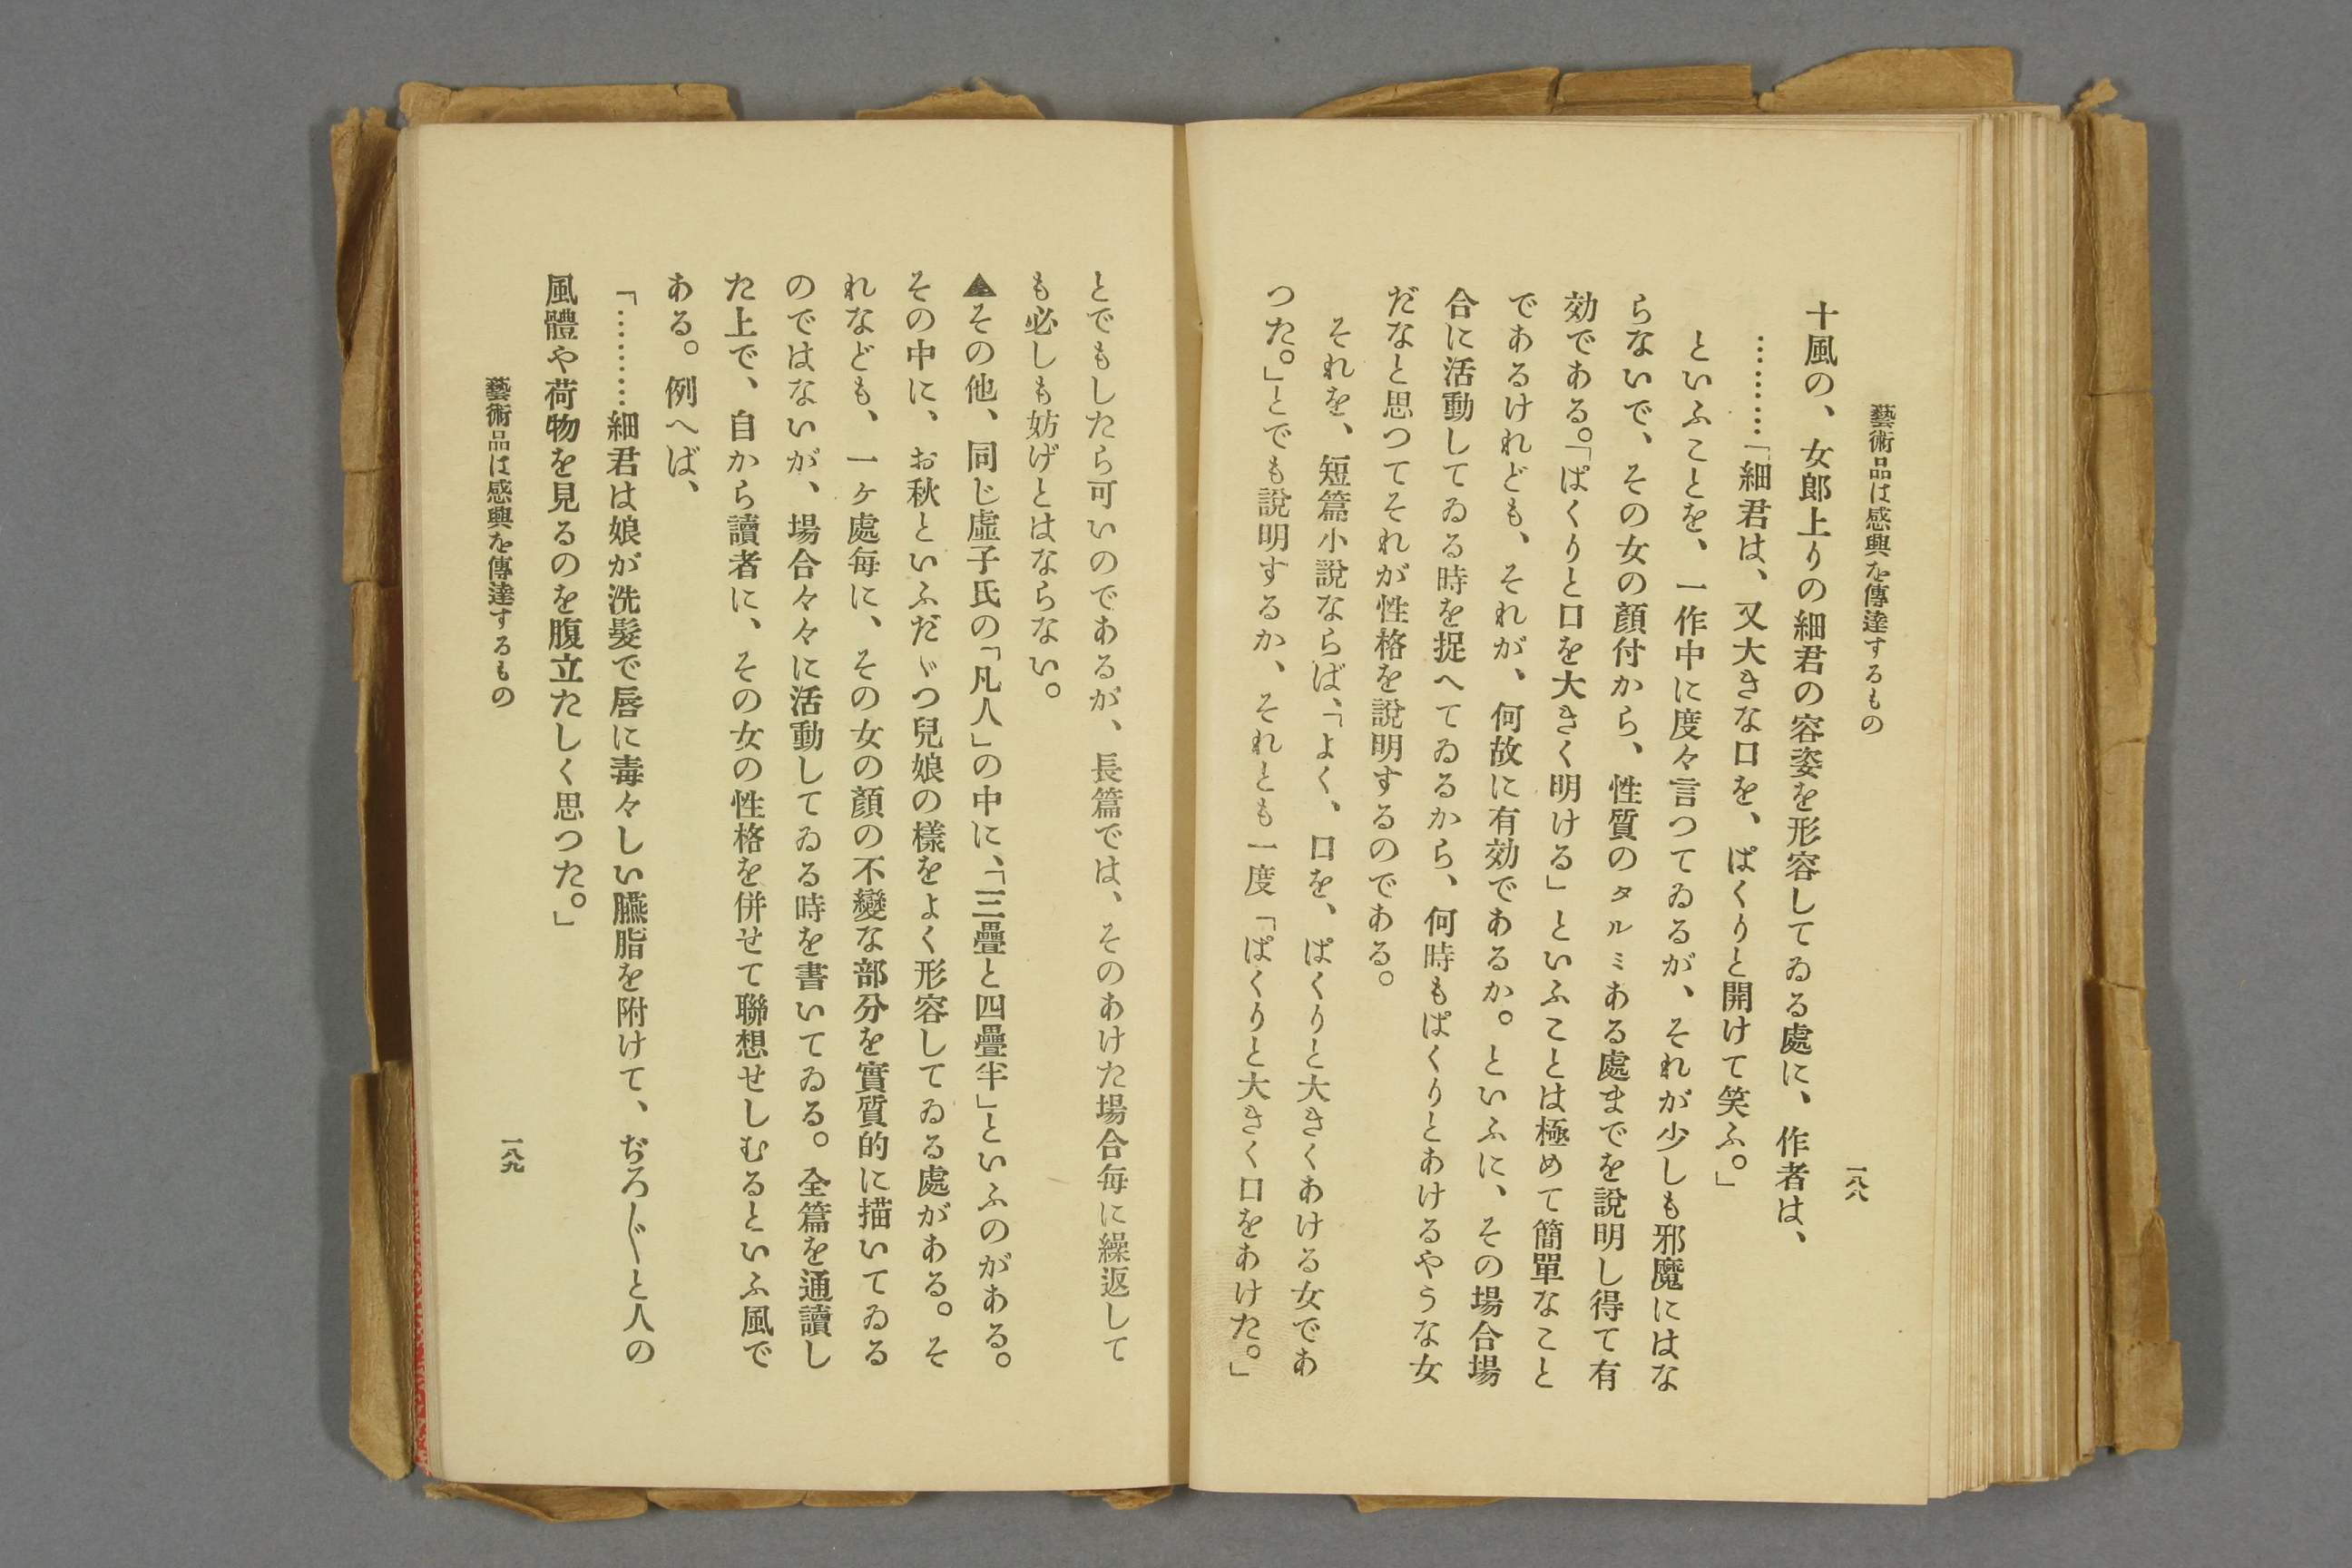 藝術品は感興を傳達するもの
一八八
十風の、女郎上りの細君の容姿を形容してゐる處に、作者は、
………「細君は、又大きな口を、ぱくりと開けて笑ふ。」
といふことを、一作中に度々言つてゐるが、それが少しも邪魔にはな
らないで、その女の顏付から、性質のタルミある處までを說明し得て有
効である。「ぱくりと口を大きく明ける」といふことは極めて簡單なこと
であるけれども、それが、何故に有効であるか。といふに、その場合場
合に活動してゐる時を捉へてゐるから、何時もぱくりとあけるやうな女
だなと思つてそれが性格を說明するのである。
それを、短篇小說ならば、「よく、口を、ぱくりと大きくあける女であ
つた。」とでも說明するか、それとも一度「ぱくりと大きく口をあけた。」
とでもしたら可いのであるが、長篇では、そのあけた場合每に繰返して
も必しも妨げとはならない。
▲その他、同じ虛子氏の「凡人」の中に、「三疊と四疊半」といふのがある。
その中に、お秋といふだゞつ兒娘の樣をよく形容してゐる處がある。そ
れなども、一ヶ處每に、その女の顏の不變な部分を實質的に描いてゐる
のではないが、場合々々に活動してゐる時を書いてゐる。全篇を通讀し
た上で、自から讀者に、その女の性格を併せて聯想せしむるといふ風で
ある。例へば、
「………細君は娘が洗髮で唇に毒々しい臙脂を附けて、ぢろ〴〵と人の
風體や荷物を見るのを腹立たしく思つた。」
藝術品は感興を傳達するもの
一八九